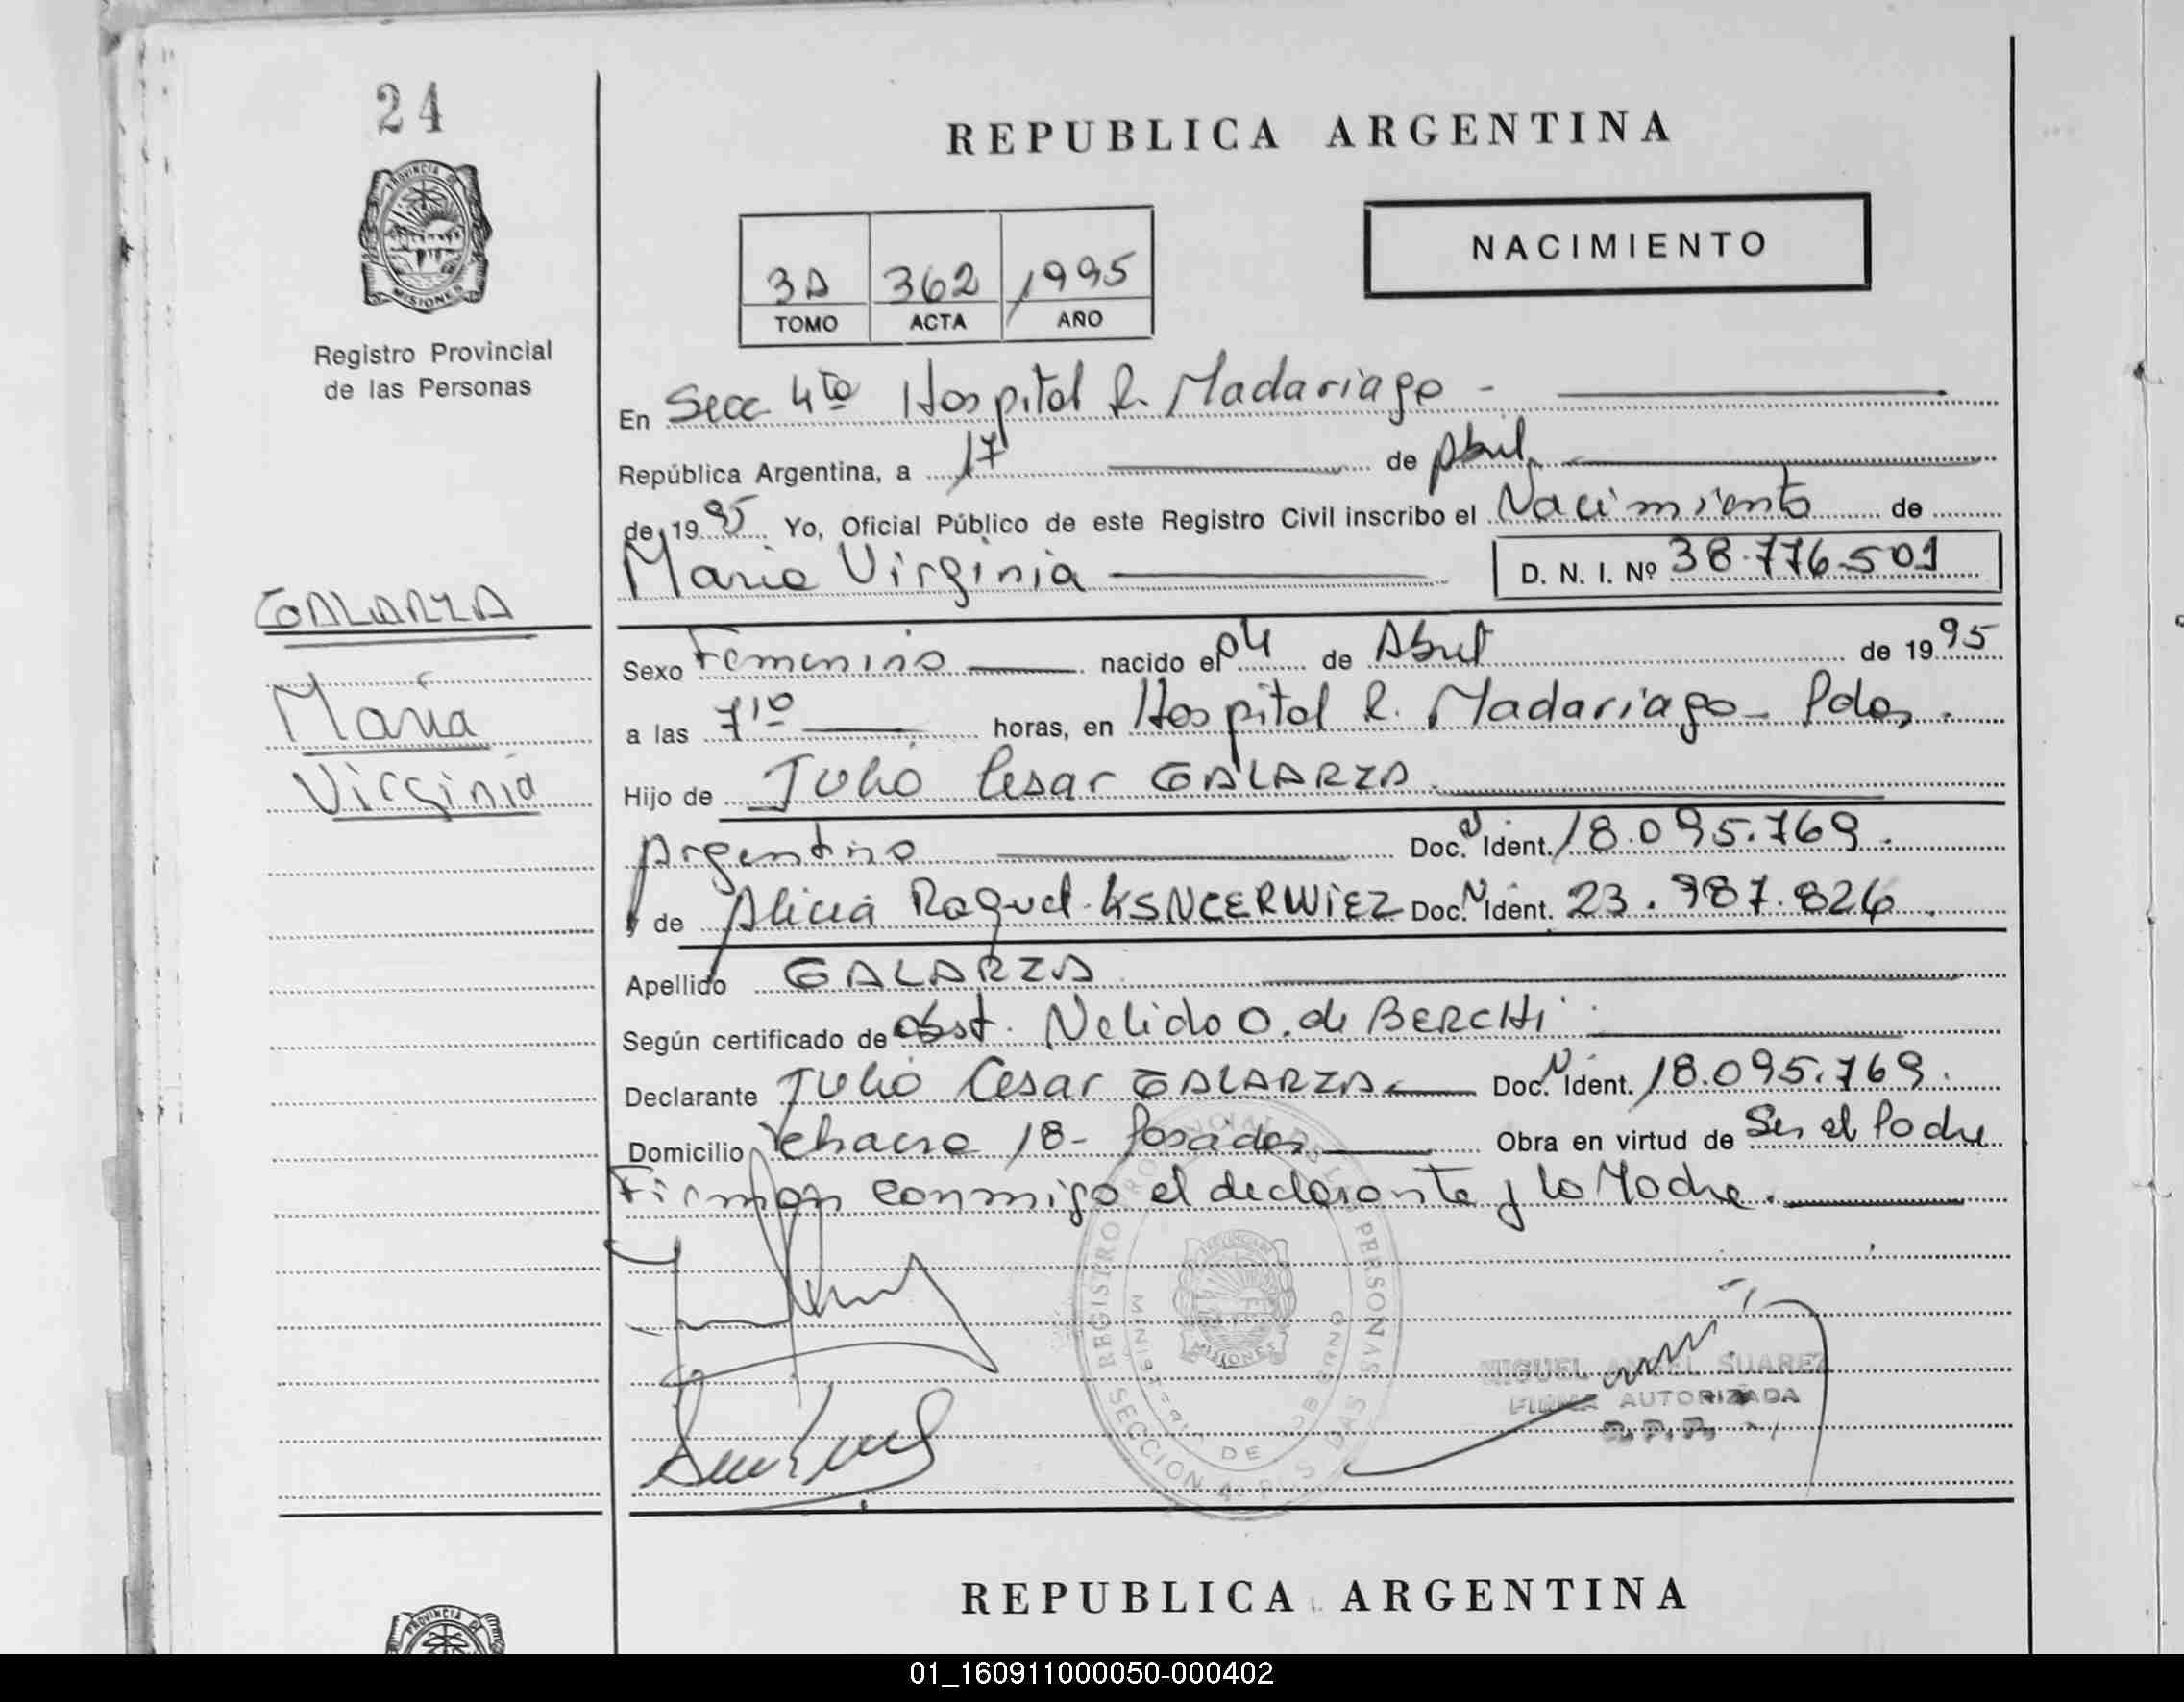 24
REPUBLICA ARGENTINA
PROVINCIA DE
MISIONES
Registro Provincial
de las Personas
NACIMIENTO
3A 362 1995
TOMO ACTA AÑO
En Secc 4ta Hospital R. Madariaga -
República Argentina, a 17 de Abril
de 1995 Yo, Oficial Público de este Registro Civil inscribo el Nacimiento de
Maria Virginia D. N. I. Nº 38.776.501
GALARZA
María
Virginia
Sexo Femenino nacido el 04 de Abril de 1995
a las 7 10 horas, en Hospital R. Madariaga - Pdas.
Hijo de Julio Cesar GALARZA
Argentino Doc. N Ident. 18.095.769.
y de Alicia Raquel KSNCERWIEZ Doc. N Ident. 23.987.826.
Apellido GALARZA
Según certificado de obst. Nelida O. de BERCHI
Declarante Julio Cesar GALARZA Doc. N Ident. 18.095.769.
Domicilio chacra 18 - Posadas Obra en virtud de Ser el Padre
Firman conmigo el declarante y la Madre.
REGISTRO PROVINCIAL DE LAS PERSONAS
MISIONES
SECCION 4
MIGUEL ANGEL SUAREZ
FIRMA AUTORIZADA
R.P.P.
REPUBLICA ARGENTINA
PROVINCIA
01_160911000050-000402